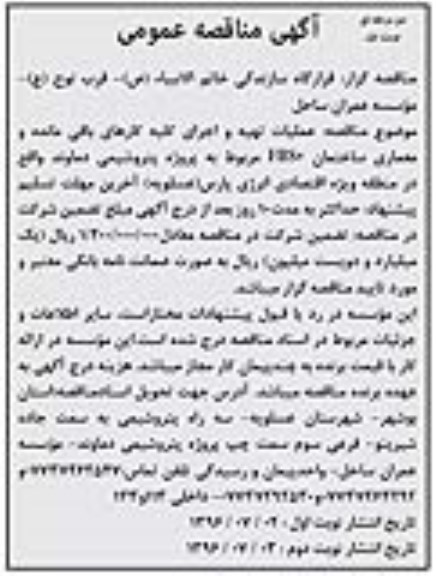 آگهی مناقصه عمومی
مناقصه گزار: قرارگاه سازندگی خاتم الانبیاء (ص)- قرب نوح (ع)-
موسسه عمران ساحل
موضوع مناقصه: عملیات تهیه و اجرای کلیه کارهای باقی مانده و
معماری ساختمان مربوط به پروژه پتروشیمی دماوند واقع
در منطقه ویژه اقتصادی انرژی پارس(عسلویه) آخرین مهلت تسلیم
پیشنهاد: حداکثر به مدت ۱۰ روز بعد از درج آگهی مبلغ تضمین شرکت
در مناقصه: تضمین شرکت در مناقصه معادل ریال (یک
میلیارد و دویست میلیون) ریال به صورت ضمانت نامه بانکی معتبر و
مورد تایید مناقصه گزار میباشد.
این موسسه در رد یا قبول پیشنهادات مختار است. سایر اطلاعات و
جزئیات مربوط در اسناد مناقصه درج شده است این موسسه در ارائه
کار با قیمت برنده به چند پیمان کار مجاز میباشد. هزینه درج آگهی به
عهده برنده مناقصه میباشد. آدرس جهت تحویل اسناد مناقصه: استان
بوشهر- شهرستان عسلویه- سه راه پتروشیمی به سمت جاده
شیرینو- فرعی سوم سمت چپ پروژه پتروشیمی دماوند- موسسه
عمران ساحل- واحد پیمان و رسیدگی تلفن تماس:
داخلی
تاریخ انتشار نوبت اول : ۰۲ / ۰۷ / ۱۳۹۶
تاریخ انتشار نوبت دوم : ۰۳ / ۰۷ / ۱۳۹۶